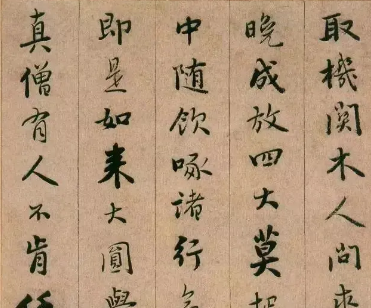 取機関木人問求
晩成放四大莫把
中随飲啄諸行無
即是如来大圓覺
真僧有人不肯任